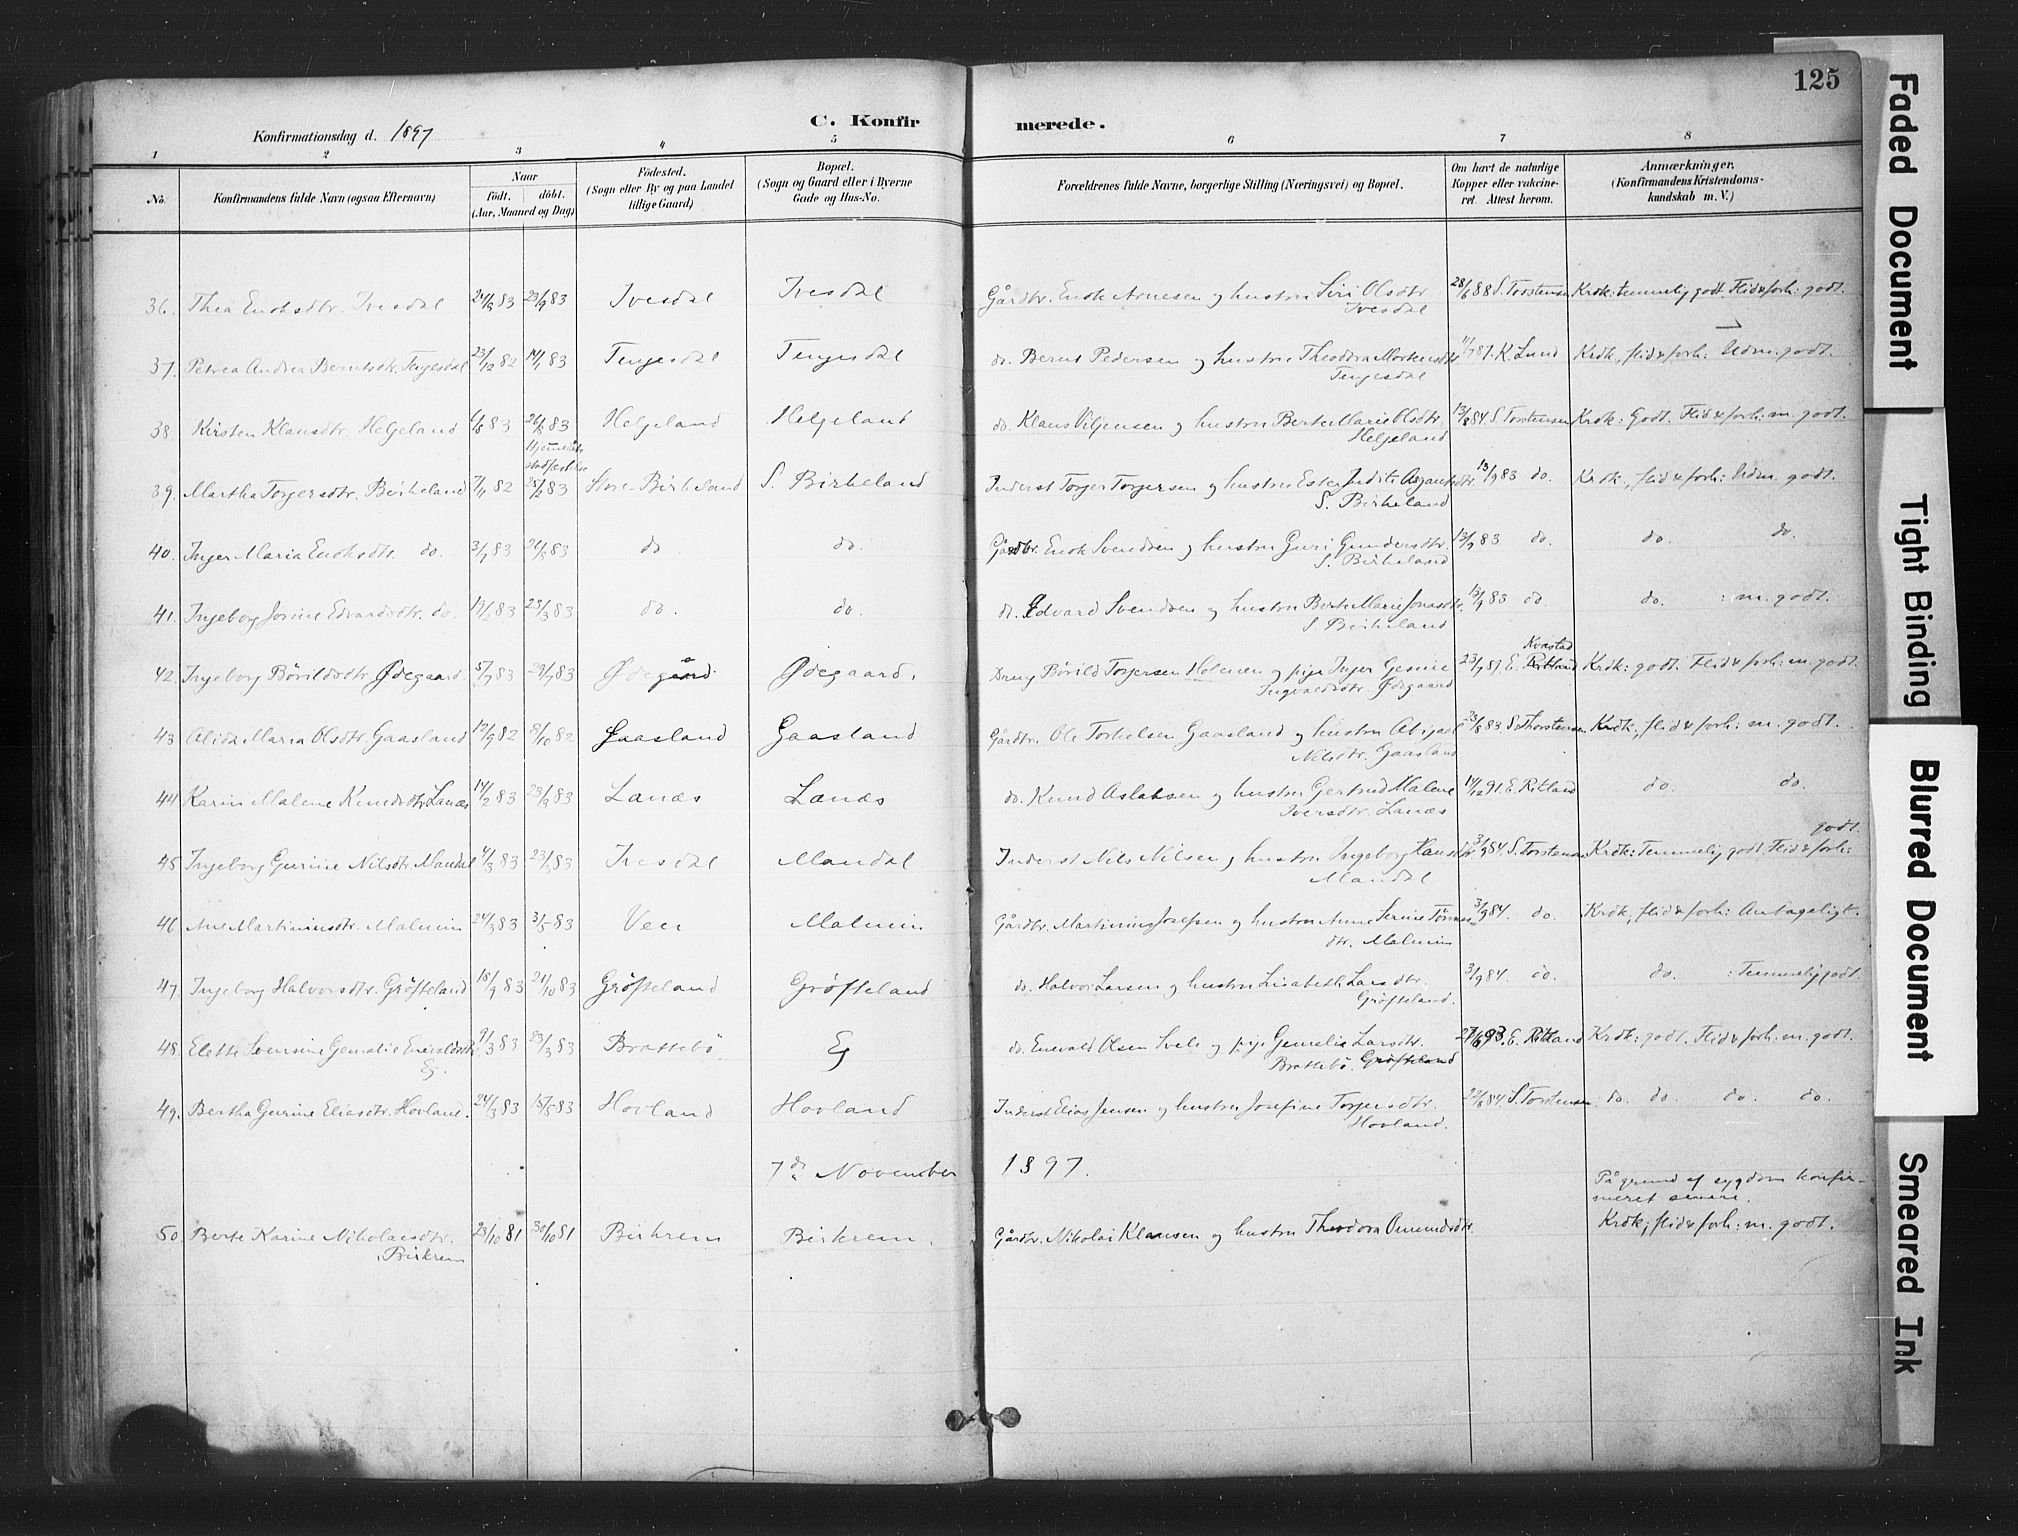 125
C. Konfirmerede.
Konfirmationsdag d. 1897
1 2 3 4 5 6 7 8
No. Konfirmandens fulde Navn (ogsaa Efternavn) Naar födt. döbt. (Aar, Maaned og Dag) Födested. (Sogn eller By og paa Landet tillige Gaard) Bopæl. (Sogn og Gaard eller i Byerne Gade og Hus-No. Forældrenes fulde Navne, borgerlige Stilling (Næringsvei) og Bopæl. Om havt de naturlige Kopper eller vakcineret. Attest herom. Anmærkninger. (Konfirmandens Kristendomskundskab m. V.)
36. Thea Enoksdtr. Ivesdal 83 83 Ivesdal Ivesdal Gårdbr. Enok Arnesen og hustru Siri Olsdtr 28/6 88 S. Torstensen Krdk: temmelig godt. Flid & forh: godt.
Ivesdal
37. Petrea Andrea Berntsdtr. Tengesdal 23/12 82 14/1 83 Tengesdal Tengesdal do. Bernt Pedersen og hustru Theodora Mortensdtr. 87. K. Lund Krdk, flid & forh: Udm. godt.
Tengesdal
38. Kirsten Klausdtr. Helgeland 6/8 83 26/8 83 Helgeland Helgeland do. Klaus Viljensen og hustru Berte Marie Olsdtr. 13/8 84. S. Torstensen Krdk: Godt. Flid & forh: m. godt.
Hjemmedøbt
stadfæstelse
Helgeland
39. Martha Torgersdtr. Birkeland 7/11 82 25/2 83 Store-Birkeland S. Birkeland Inderst Torger Torgersen og hustru Ester Judite 13/9 83 do. Krdk., flid & forh: Udm. godt.
S. Birkeland
40. Inger Maria Enoksdtr. do. 3/7 83 83 do do. Gårdbr. Enok Svendsen og hustru Guri Gundersdtr. 13/9 83 do. do. do.
S. Birkeland
41. Ingeborg Josine Edvardsdtr. do. 19/2 83 25/3 83 do. do. do. Edvard Svendsen og hustru Berte Marie Jonasdtr. 13/9 83 do do. : m. godt.
S. Birkeland
42. Ingeborg Börildsdtr. Ødegaard. 5/7 83 29/7 83 Ødegaard. Ødegaard. Dreng Börild Torgersen Holmen og pige Inger Gesine 23/7 87. E. Kvastad Krdk: godt. Flid & forh: m. godt
Ingvaldsdtr. Ødegaard
43 Alida Maria Olsdtr. Gaasland 19/9 82 8/10 82 Gaasland Gaasland Gårdbr. Ole Torkelsen Gaasland og hustru Abigael 23/8 83. S. Thorstensen Krdk., flid & forh: m. godt.
Nilsdtr. Gaasland
44 Karin Malene Knudsdtr. Lanæs 14/2 83 83 Lanæs Lanæs do. Knud Aslaksen og hustru Gertrud Malene 14/12 91. E. Ritland do. do.
Iversdtr. Lanæs
45 Ingeborg Gurine Nilsdtr. Mandal 4/3 83 83 Ivesdal Mandal Inderst Nils Nilsen og hustru Ingeborg Hansdtr 3/9 84. S. Torstensen Krdk: Temmelig godt. Flid & forh: godt.
Mandal
46 Ane Martiniusdtr. Malmin 24/3 83 3/5 83 Veen Malmin Gårdbr. Martinius Josefsen og hustru Anne Serine Tönnes 3/9 84. do. Krdk., flid & forh: Antageligt.
dtr. Malmin
47. Ingeborg Halvorsdtr. Gröfteland 18/9 83 21/10 83 Gröfteland Gröfteland do. Halvor Larsen og hustru Lisabeth Larsdtr. 3/9 84. do. do. : Temmelig godt.
Gröfteland.
48. Elette Svensine Gemalie Enevaldsdtr. 9/3 83 23/3 83 Brattebö Eg do. Enevald Olsen Svele og pige Gemalie Larsdtr. 27/6 93. E. Ritland Krdk: godt. Flid & forh: m. godt.
Eg. Brattebö. Gröfteland
49. Bertha Gurine Eliasdtr. Hovland. 24/3 83 15/5 83 Hovland Hovland Inderst Elias Jensen og hustru Josefine Torgersdtr. 84. S. Torstensen do. do. do. do.
Hovland.
7de November 1897.
På grund af sygdom konfir-
meret senere.
50. Berte Karine Nikolaisdtr. 23/10 81 30/10 81 Birkrem Birkrem. Gårdbr. Nikolai Klausen og hustru Theodora Omundsdtr. Krdk; flid & forh: m. godt.
Birkrem
Faded Document
Tight Binding
Blurred Document
Smeared Ink